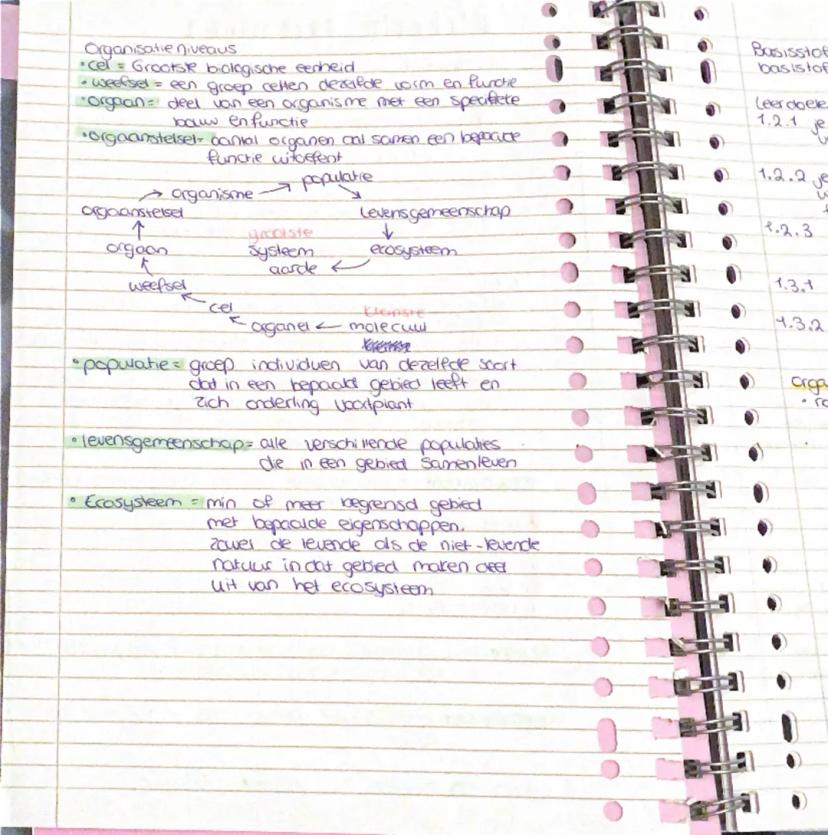 Organisatieniveaus
• cel = Grootste biologische eenheid
• weefsel = een groep cellen dezelfde vorm en functie
• orgaan = deel van een organisme met een specifieke
bouw en functie
• orgaanstelsel = aantal organen dat samen een bepaalde
functie uitoefent
→ organisme → populatie
orgaanstelsel
levensgemeenschap
orgaan
grootste
systeem
aarde
ecosysteem
weefsel
cel
organel ← molecuul
kleinste
• populatie = groep individuen van dezelfde soort
dat in een bepaald gebied leeft en
zich onderling voortplant
• levensgemeenschap = alle verschillende populaties
die in een gebied samenleven
• Ecosysteem = min of meer begrensd gebied
met bepaalde eigenschappen.
zowel de levende als de niet-levende
natuur in dat gebied maken deel
uit van het ecosysteem
Basisstof
basistof
Leerdoele
1.2.1 je
1.2.2 je
1.2.3
1.3.1
1.3.2
orga